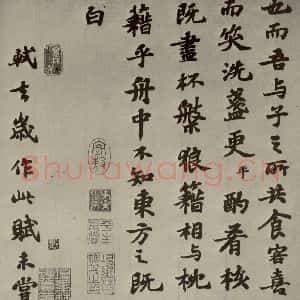 也而吾与子之所共食客喜
而笑洗盞更平酌肴核
既盡杯槃狼籍相与枕
藉乎舟中不知東方之既
白
軾去歲作此賦未嘗
Shufawang.CN